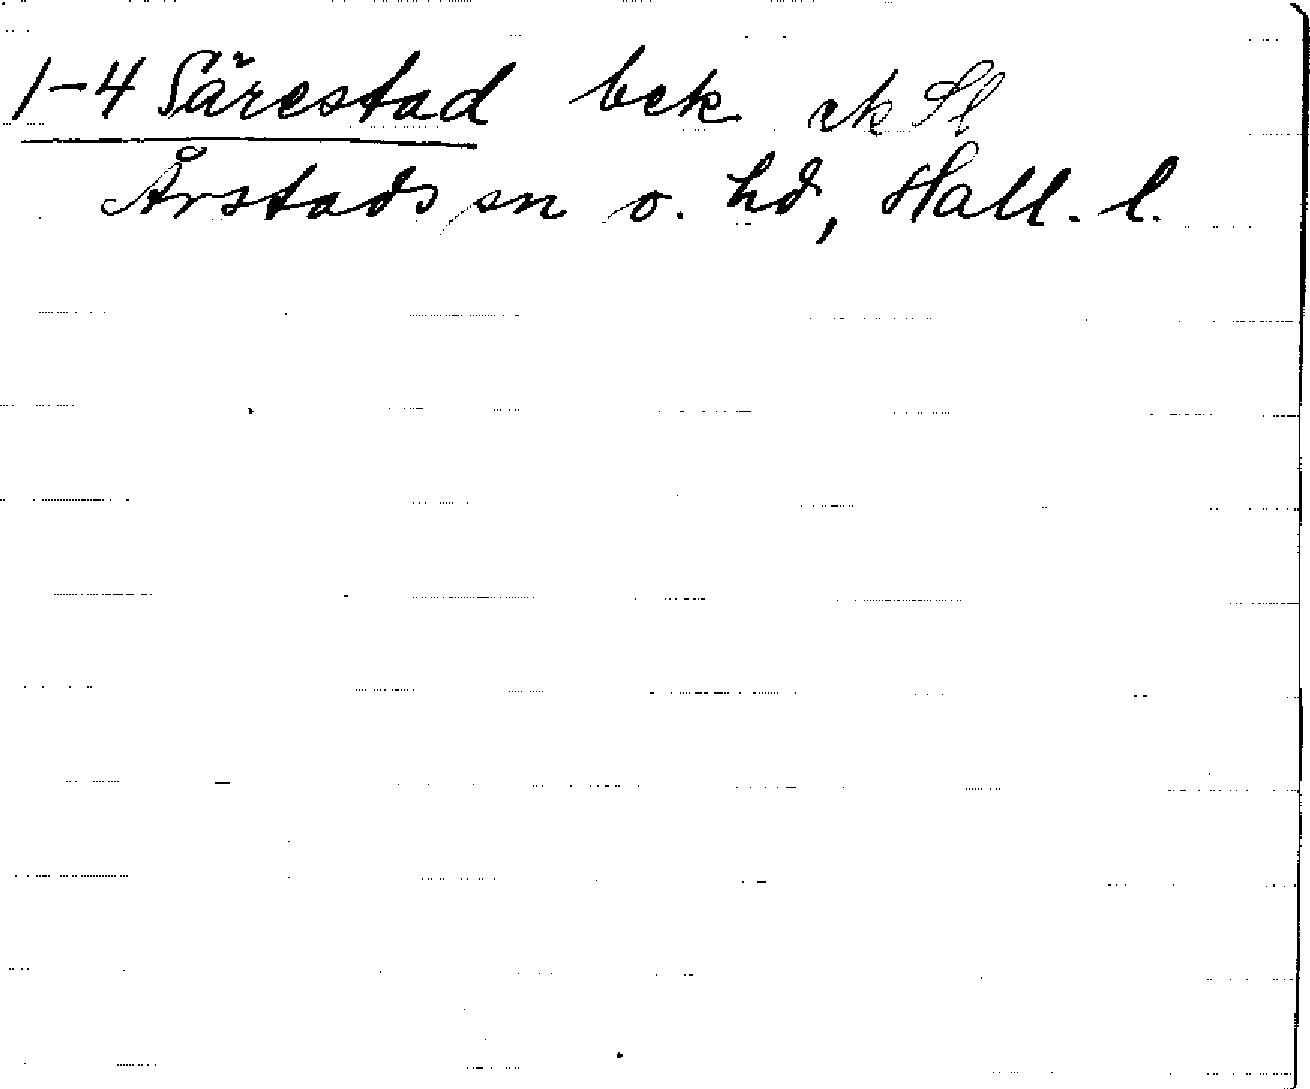 1-4 Särestad bek. ek Sl
Årstads sn o. hd, Hall. l.